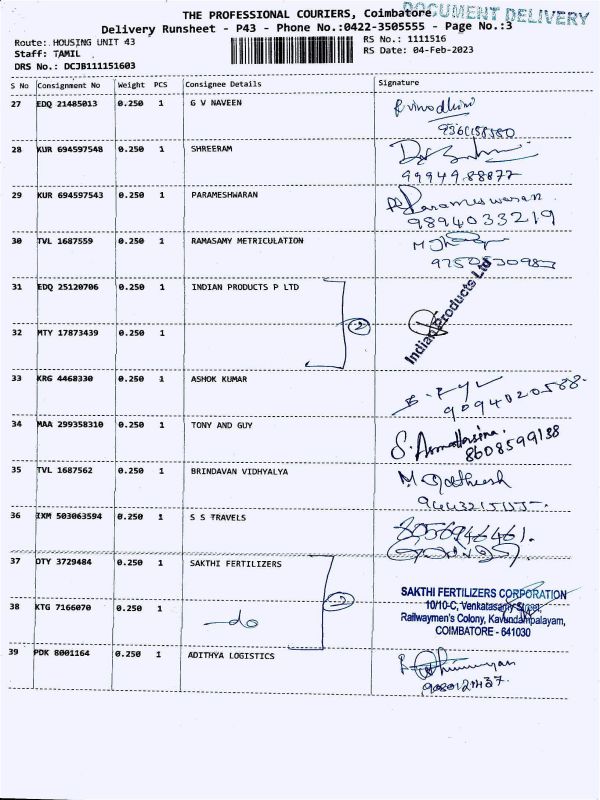 DOCUMENT DELIVERY
THE PROFESSIONAL COURIERS, Coimbatore.
Delivery Runsheet - P43 - Phone No.:0422-3505555 - Page No.:3
Route: HOUSING UNIT 43
RS No.: 1111516
Staff: TAMIL
RS Date: 04-Feb-2023
DRS No.: DCJB111151603
S No Consignment No Weight PCS Consignee Details Signature
27 EDQ 21485013 0.250 1 G V NAVEEN
28 KUR 694597548 0.250 1 SHREERAM
99949 88877
29 KUR 694597543 0.250 1 PARAMESHWARAN Parameswaran
9894033219
30 TVL 1687559 0.250 1 RAMASAMY METRICULATION
31 EDQ 25120706 0.250 1 INDIAN PRODUCTS P LTD
2
Indian Products Ltd
32 MTY 17873439 0.250 1
33 KRG 4468330 0.250 1 ASHOK KUMAR
9094020588
34 MAA 299358310 0.250 1 TONY AND GUY
8608599138
35 TVL 1687562 0.250 1 BRINDAVAN VIDHYALYA
36 IXM 503063594 0.250 1 S S TRAVELS
8056946461.
37 OTY 3729484 0.250 1 SAKTHI FERTILIZERS
2
SAKTHI FERTILIZERS CORPORATION
10/10-C, Venkatasamy Street,
Railwaymen's Colony, Kavundampalayam,
COIMBATORE - 641030
38 KTG 7166070 0.250 1 do
39 PDK 8001164 0.250 1 ADITHYA LOGISTICS